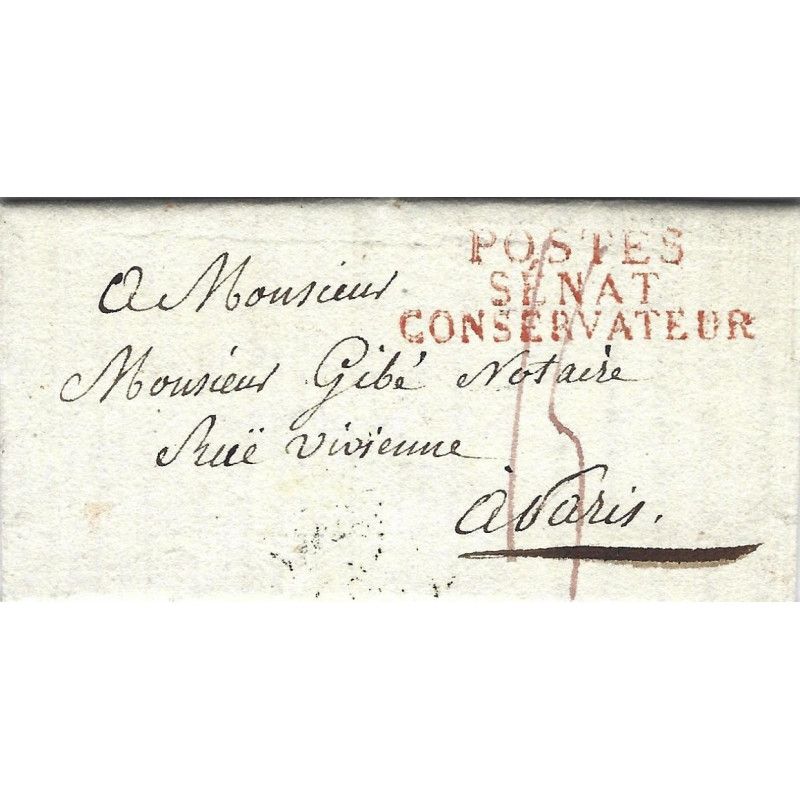 POSTES
SÉNAT
CONSERVATEUR
a Monsieur
Monsieur Gibé Notaire
Ruë vivienne
à Paris.
15